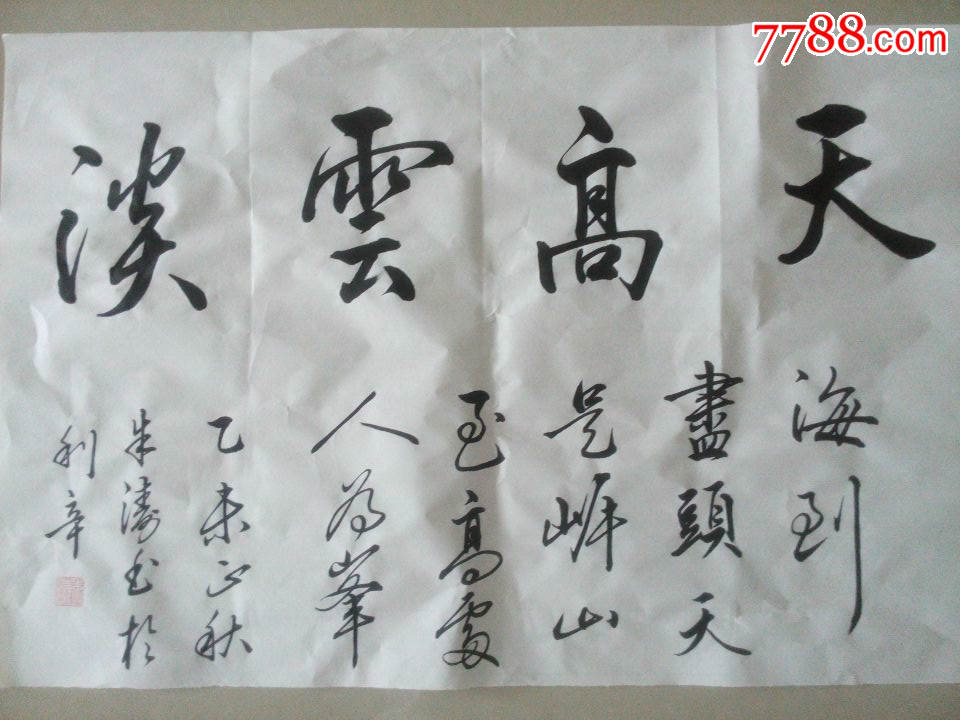 7788.com
天高雲淡
海到
盡頭天
是岸山
至高處
人為峯
乙未正秋
朱濤书於
利辛